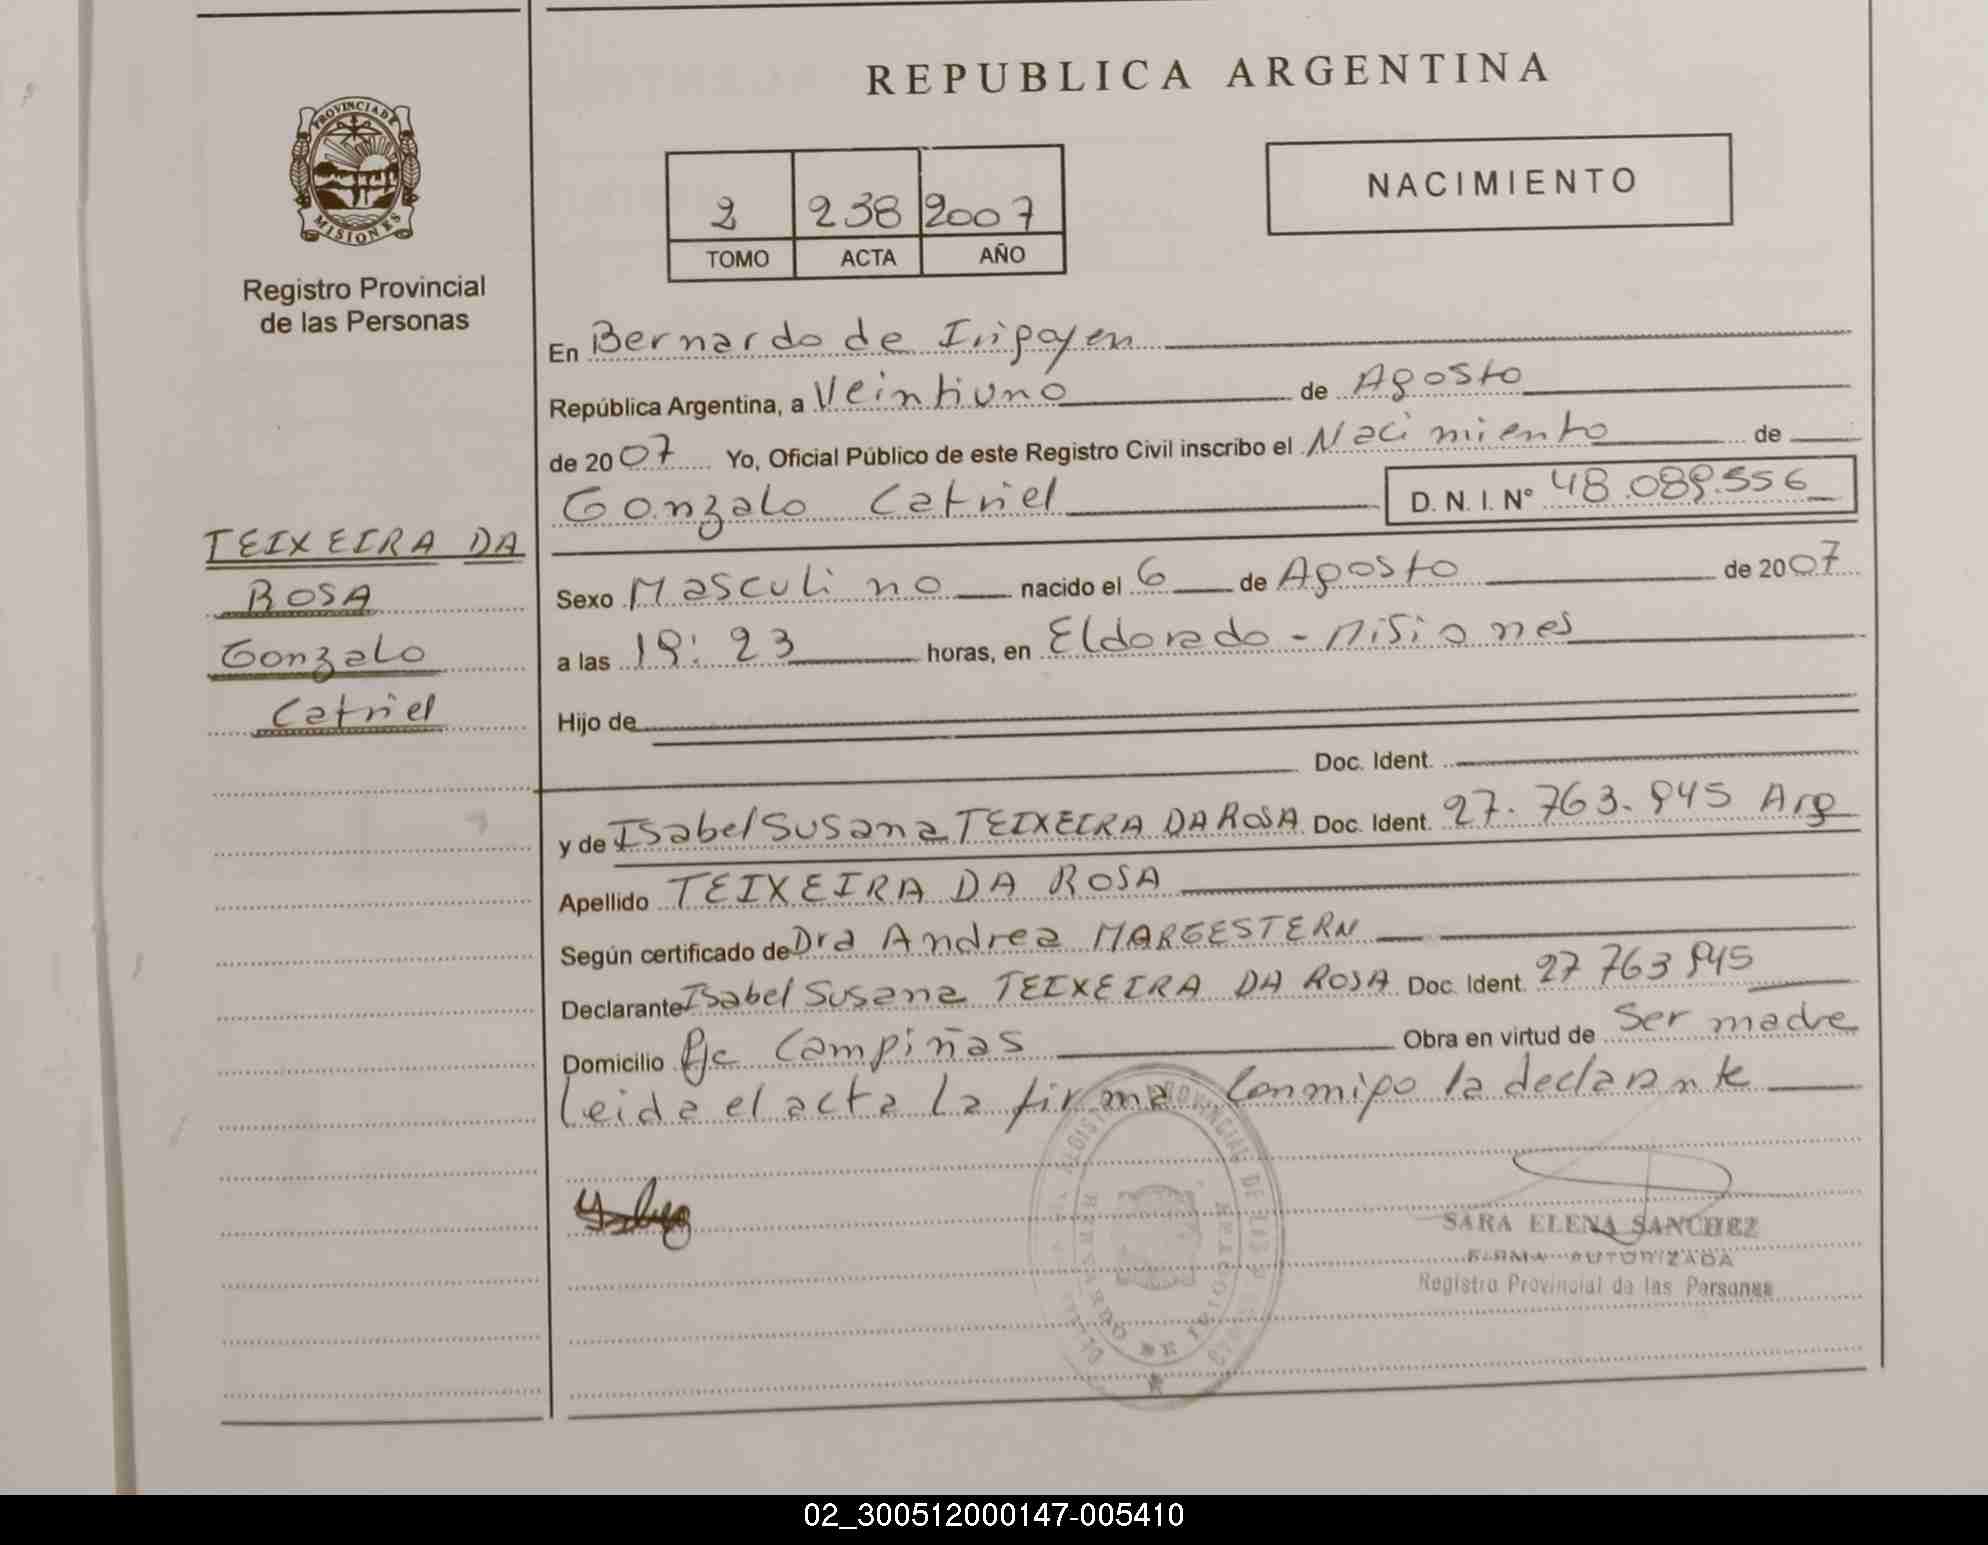 REPUBLICA ARGENTINA
PROVINCIA DE
MISIONES
Registro Provincial
de las Personas
2 238 2007
TOMO ACTA AÑO
NACIMIENTO
En Bernardo de Irigoyen
República Argentina, a Veintiuno de Agosto
de 2007 Yo, Oficial Público de este Registro Civil inscribo el Nacimiento de
Gonzalo Catriel D. N. I. Nº 48.089.556
TEIXEIRA DA
ROSA
Gonzalo
Catriel
Sexo Masculino nacido el 6 de Agosto de 2007
a las 19:23 horas, en Eldorado - Misiones
Hijo de
Doc. Ident.
y de Isabel Susana TEIXEIRA DA ROSA Doc. Ident. 27.763.945 Arg
Apellido TEIXEIRA DA ROSA
Según certificado de Dra Andrea MARGESTERN
Declarante Isabel Susana TEIXEIRA DA ROSA Doc. Ident. 27 763 945
Domicilio Pje Campiñas Obra en virtud de Ser madre
Leida el acta la firma Conmigo la declarante
SARA ELENA SANCHEZ
FIRMA AUTORIZADA
Registro Provincial de las Personas
BERNARDO DE IRIGOYEN
02_300512000147-005410